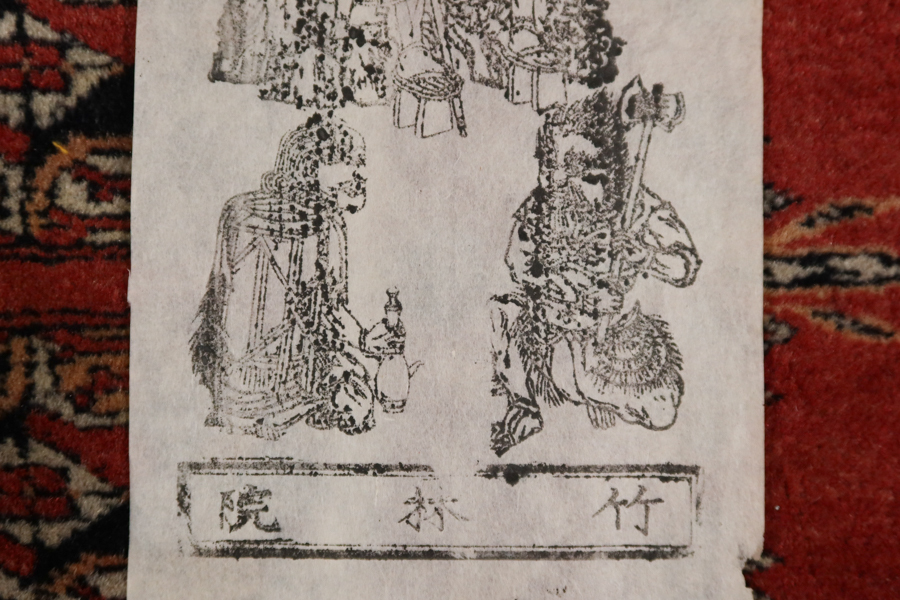 竹林院